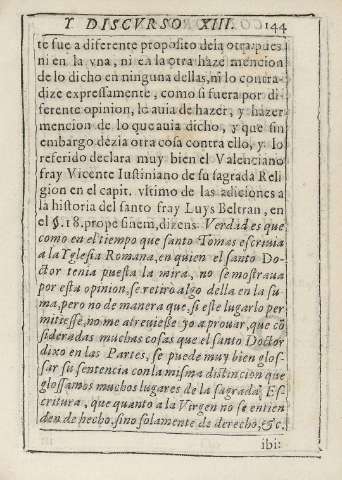 Y DISCVRSO XIII. 144
te fue a diferente proposito dela otra, pues
ni en la vna, ni en la otra haze mencion
de lo dicho en ninguna dellas, ni lo contra-
dize expressamente, como si fuera por di
ferente opinion, lo auia de hazer, y hazer
mencion de lo que auia dicho, y que sin
embargo dezia otra cosa contra ello, y lo
referido declara muy bien el Valenciano
fray Vicente Iustiniano de su sagrada Reli
gion en el capit. vltimo de las adiciones a
la historia del santo fray Luys Beltran, en
el §. 18. prope finem, dizens. Verdad es que
como en el tiempo que santo Tomas escriuia
a la Yglesia Romana, en quien el santo Do-
ctor tenia puesta la mira, no se mostraua
por esta opinion, se retirò algo della en la su
ma, pero no de manera que, si este lugar lo per
mitiesse, no me atreuiesse yo a prouar, que cõ
sideradas muchas cosas que el santo Doctor
dixo en las Partes, se puede muy bien glos-
sar su sentencia con la misma distincion que
glossamos muchos lugares de la sagrada Es-
critura, que quanto a la Virgen no se entien
den de hecho, sino solamente de derecho, &c.
ibi: